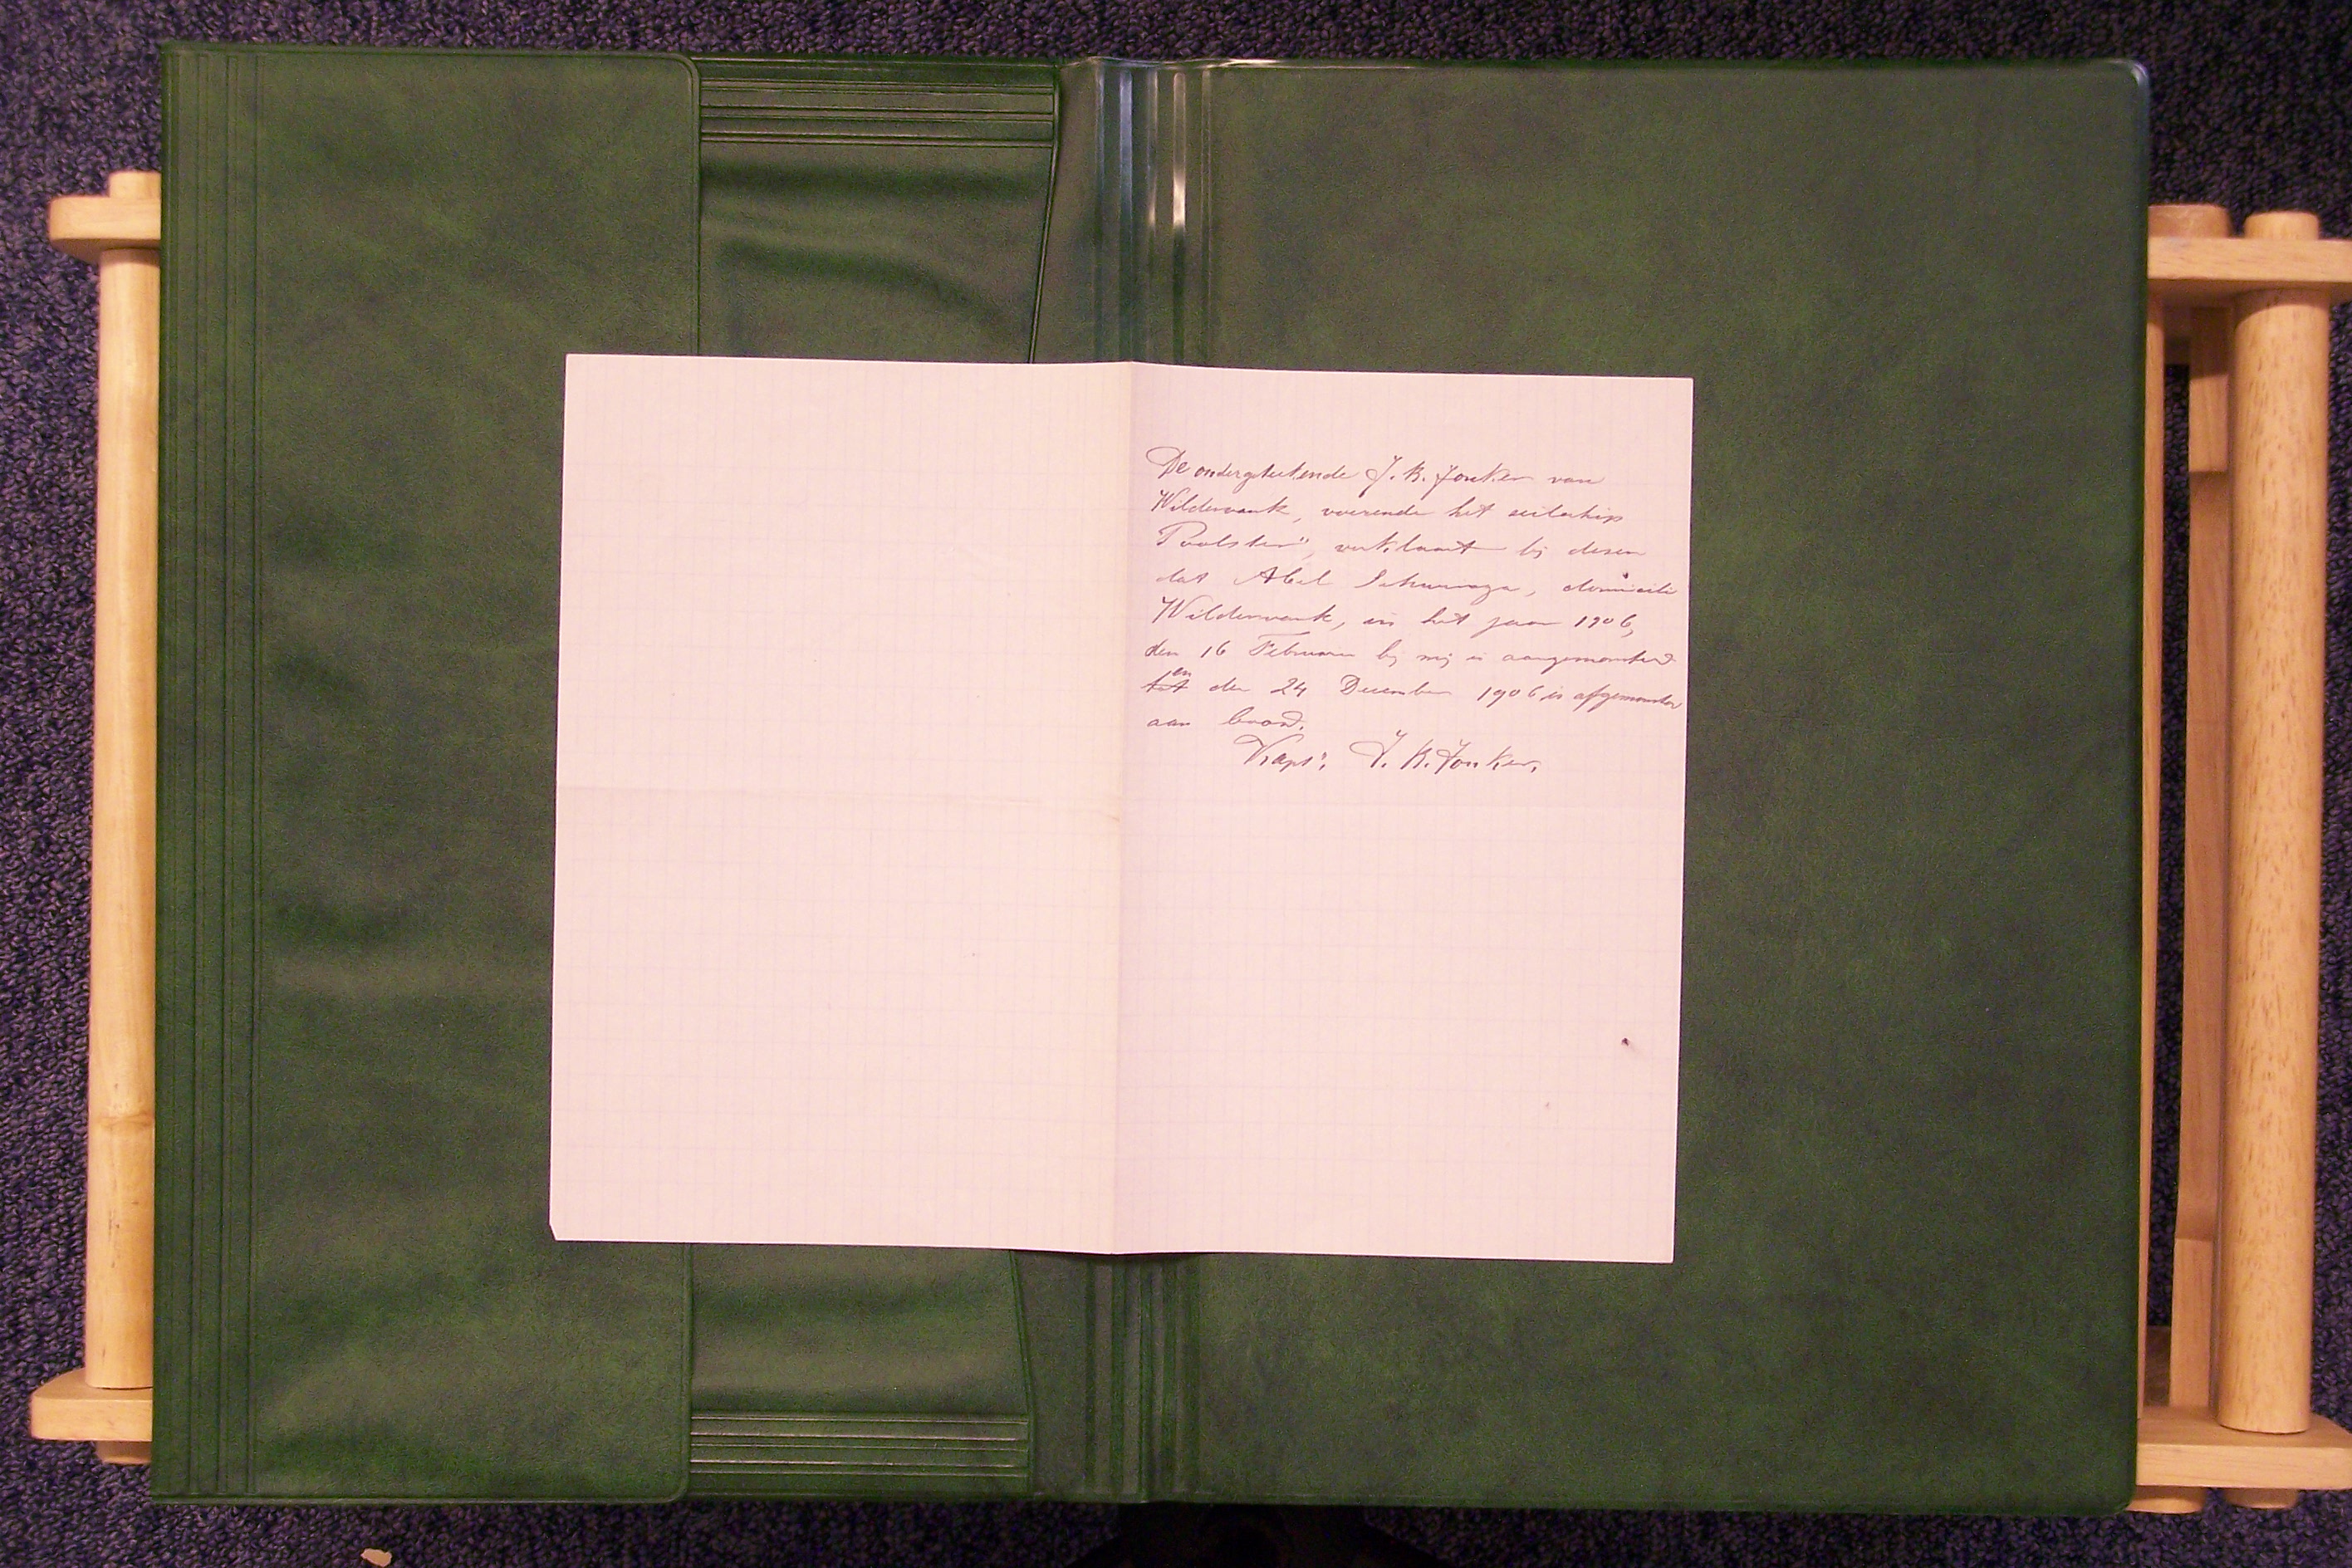 De ondergeteekende J. K. Jonker van
Wildervank, voerende het zeilschip
"Poolster", verklaart bij dezen
dat Abel Schuringa, domicili
Wildervank, in het jaar 1906,
den 16 Februari bij mij is aangemonsterd
en den 24 December 1906 is afgemonsterd
aan boord.
Kapt. J. K. Jonker.